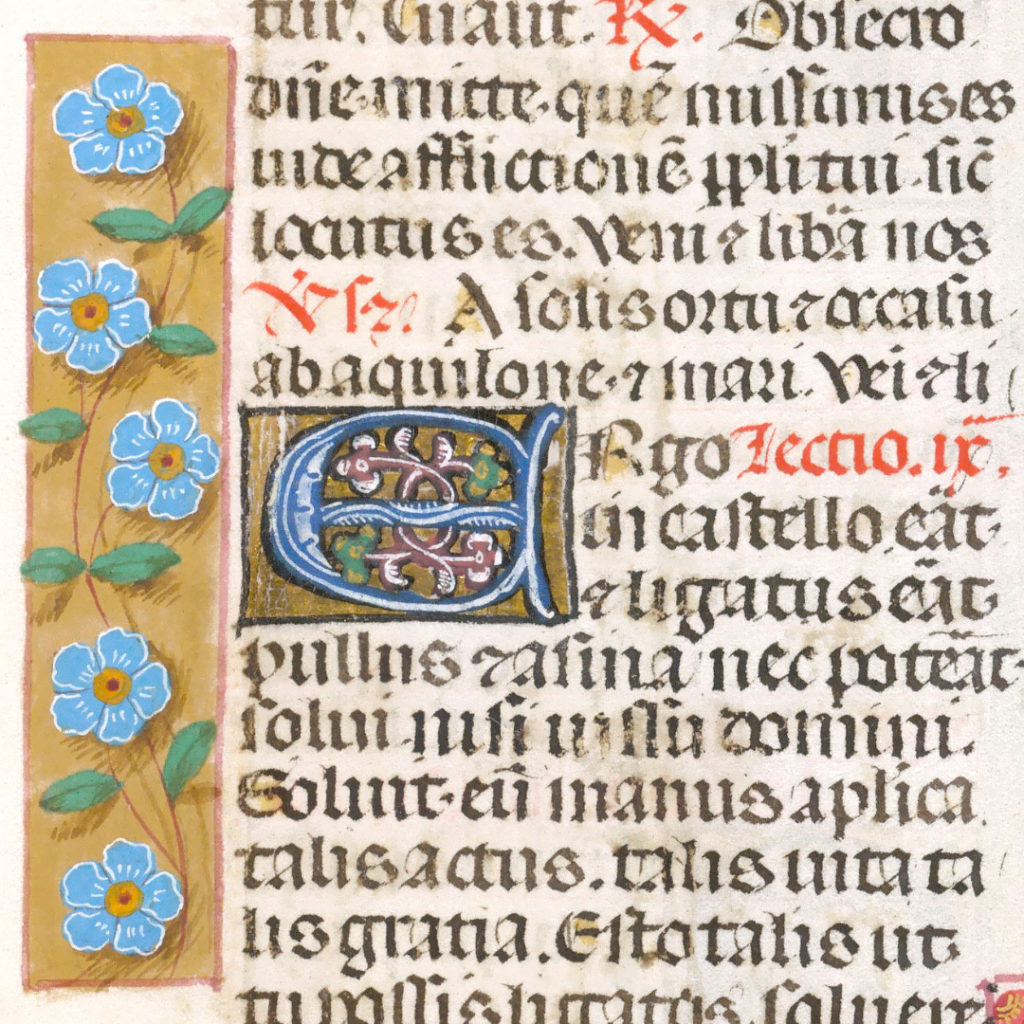 tur. Cuaut. ℟. Obsecro
dñe mitte quē missurus es
uide afflictionē ppli tui sic̄
locutus es. Veni ⁊ libā nos
Vsꝫ. A solis ortu ⁊ occasu
ab aquilone ⁊ mari. Vei ⁊ li
ERgo Lectio. ix̄.
in castello. eāt
⁊ ligatus eāt
pullus ⁊ asina nec poteāt
solui nisi iussu domini.
Soluit eū manus aplica.
talis actus. talis uita ta
lis gratia. Esto talis ut
tu possis ligatos soluere